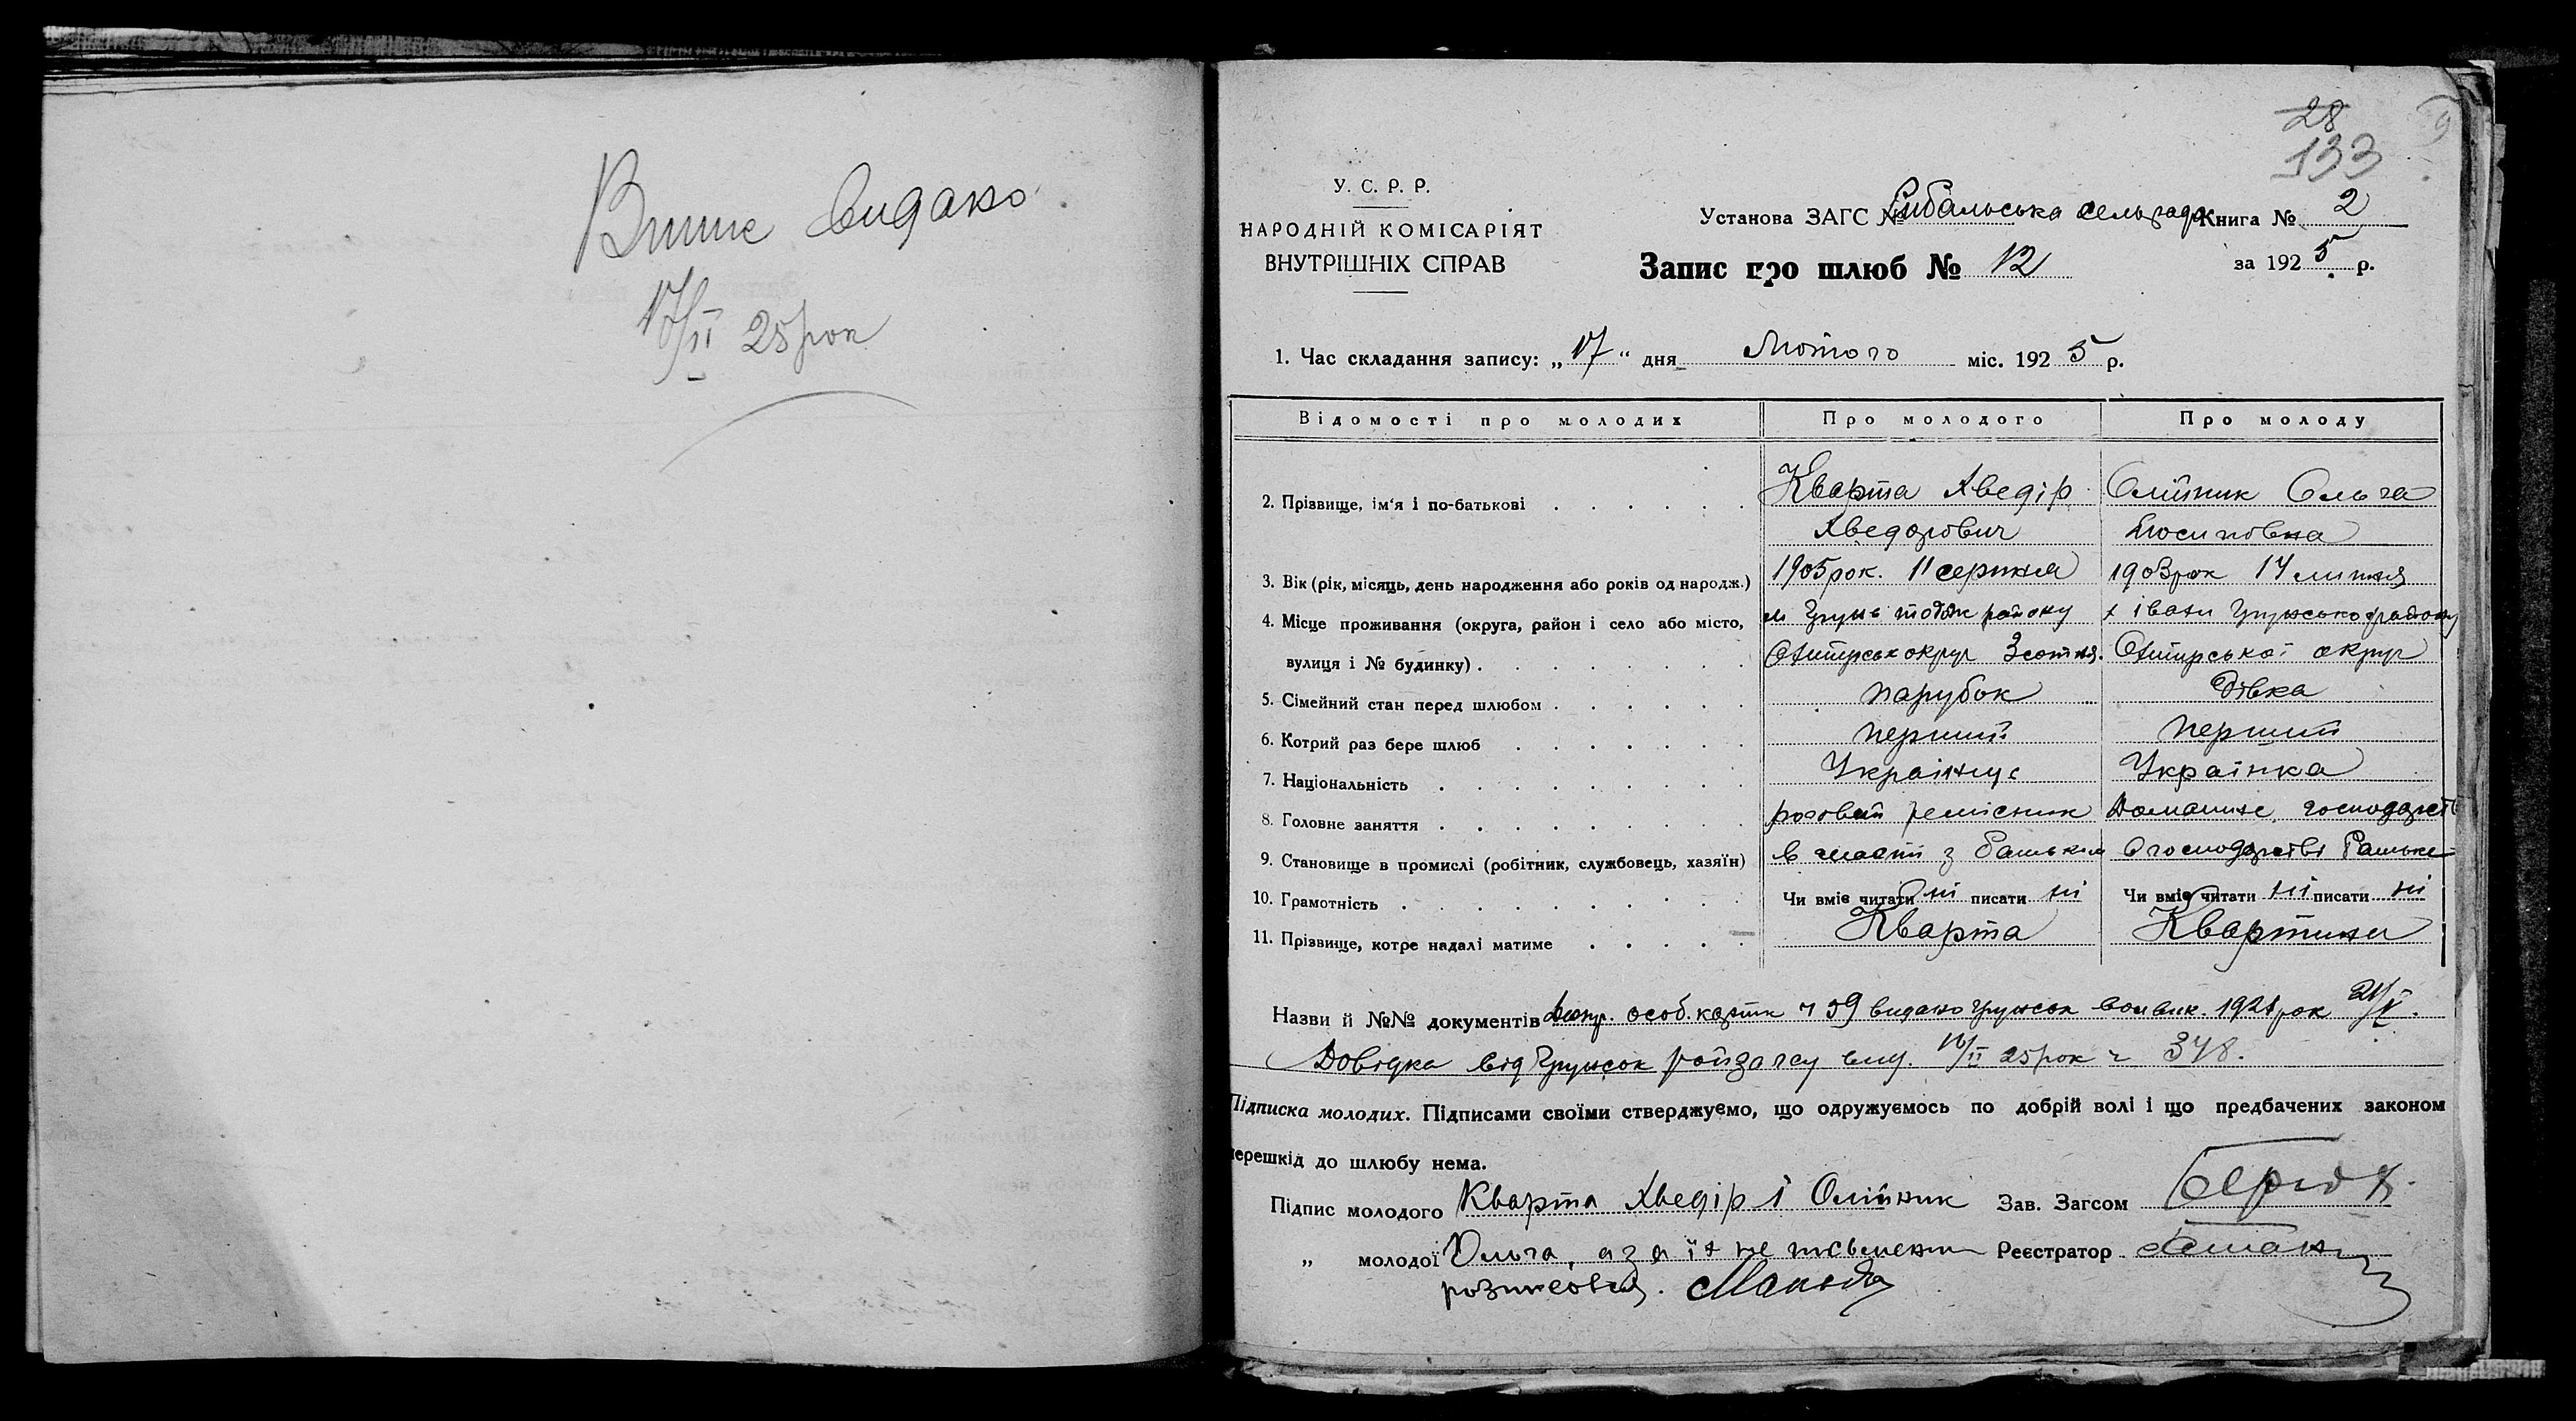 Випис видано
17/II 25 рок
28
133
У. С. Р. Р.
НАРОДНІЙ КОМІСАРІЯТ
ВНУТРІШНІХ СПРАВ
Установа ЗАГС № Рибальська сельрада Книга № 2
Запис про шлюб № 12 за 1925 р.
1. Час складання запису: „17“ дня Лютого міс. 1925 р.
Відомості про молодих Про молодого Про молоду
2. Прізвище, ім'я і по-батькові Кварта Хведір Олійник Ольга
Хведорович Йосиповна
3. Вік (рік, місяць, день народження або років од народж.) 1905 рок. 11 серпня 1903 рок 14 липня
4. Місце проживання (округа, район і село або місто, м Грунь тобіж району х івани Грунського району
вулиця і № будинку) Охтирськ округ 3 сотня. Охтирської округ
5. Сімейний стан перед шлюбом парубок дівка
6. Котрий раз бере шлюб перший перший
7. Національність Українец Українка
8. Головне заняття ремісник Домашнє господарств
9. Становище в промислі (робітник, службовець, хазяїн) в з батьком В господарстві батьк
10. Грамотність Чи вміє читати ні писати ні Чи вміє читати ні писати ні
11. Прізвище, котре надалі матиме Кварта Квартина
Назви й №№ документів особ. картк ч 59 видано Грунськ волвик. 192 рок
Довідка від Грунськ райзагсу 25 рок ч 348.
Підписка молодих. Підписами своїми стверджуємо, що одружуємось по добрій волі і що предбачених законом
перешкід до шлюбу нема.
Підпис молодого Кварта Хведір і Олійник Зав. Загсом
„ молодої Ольга, а за їх не письменн Реєстратор
розписовся.